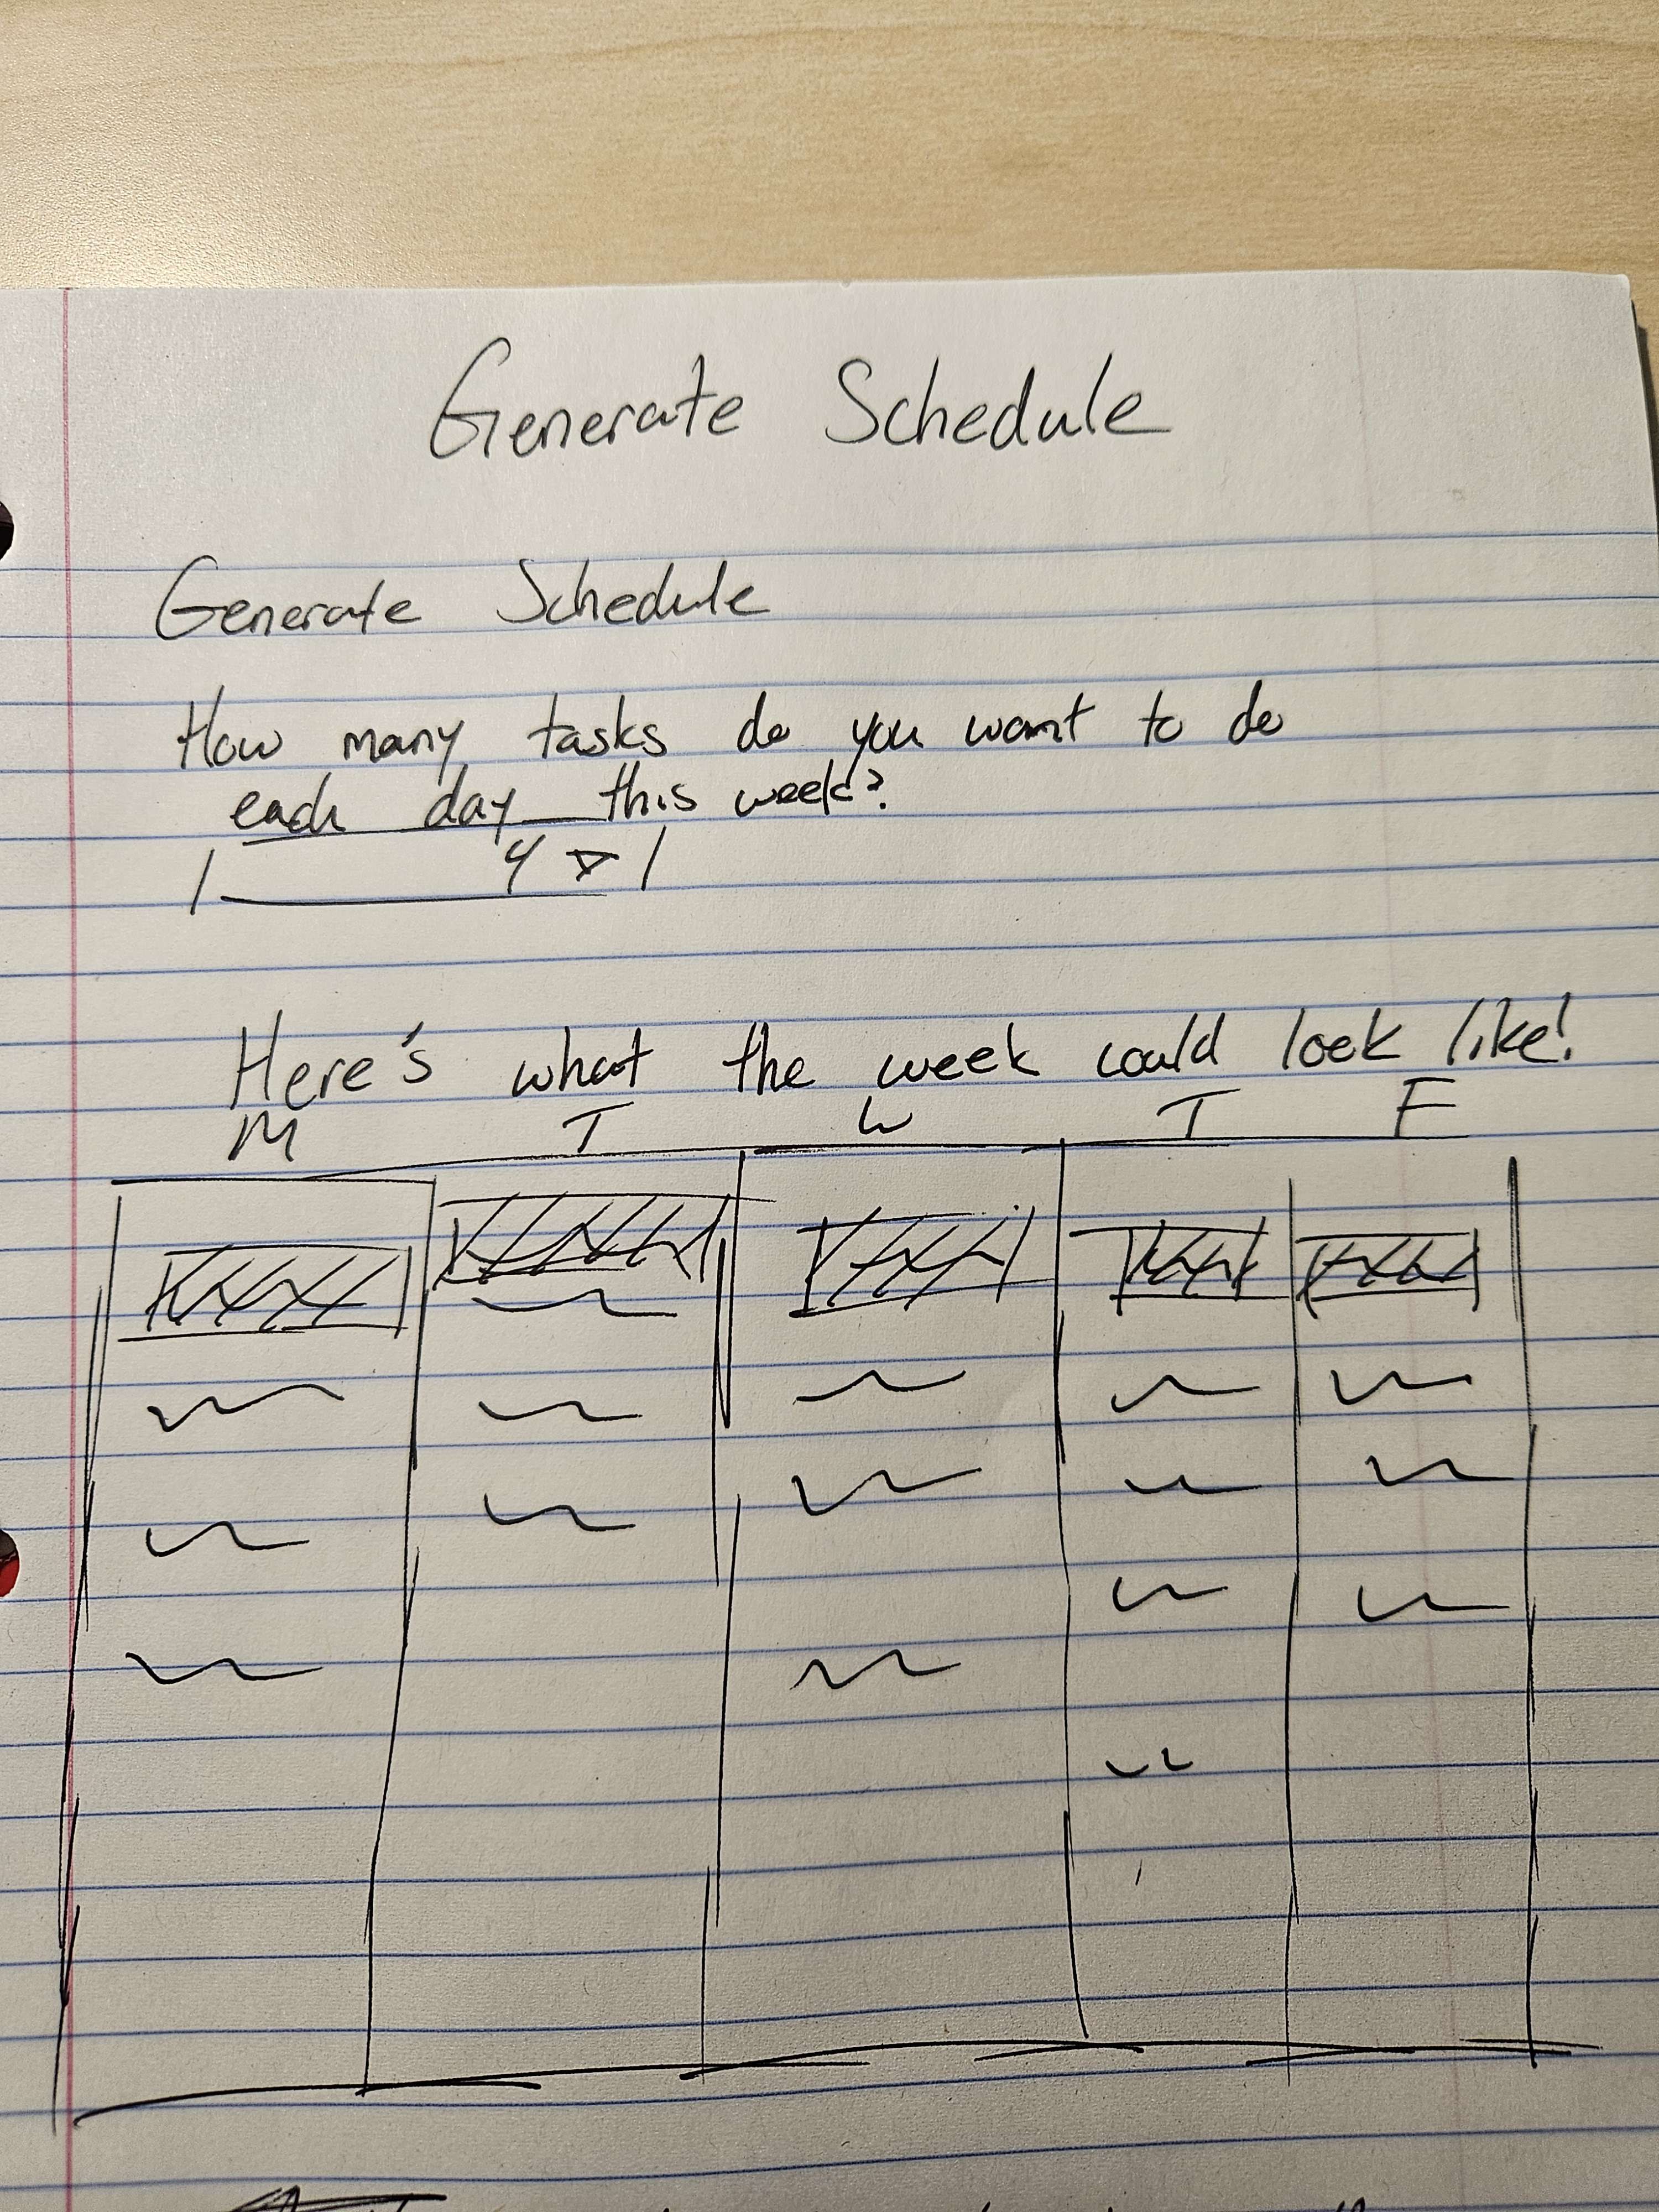 Generate Schedule
Generate Schedule
How many tasks do you want to do
each day this week?
4
Here's what the week could look like!
M T W T F